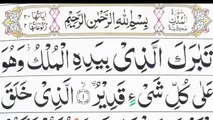 بِسْمِ اللهِ الرَّحْمٰنِ الرَّحِيْمِ
تَبٰرَكَ الَّذِیْ بِیَدِهِ الْمُلْكُ وَهُوَ
عَلٰی كُلِّ شَیْءٍ قَدِیْرُ ۙ ۝۱ الَّذِیْ خَلَقَ